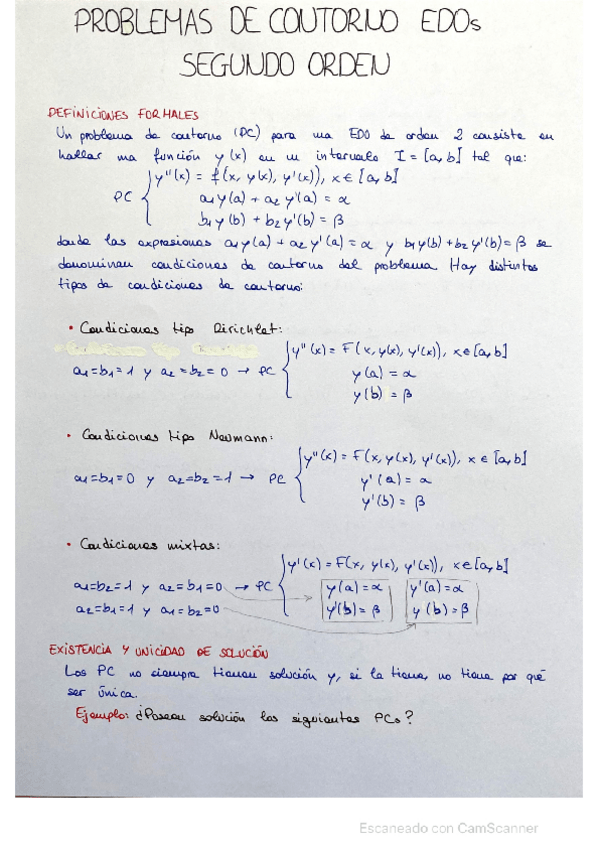 PROBLEMAS DE CONTORNO EDOs
SEGUNDO ORDEN
DEFINICIONES FORMALES
Un problema de contorno (PC) para una EDO de orden 2 consiste en
hallar una función y(x) en un intervalo I = [a, b] tal que:
y''(x) = f(x, y(x), y'(x)), x ∈ [a, b]
PC { a₁y(a) + a₂ y'(a) = α
b₁y(b) + b₂y'(b) = β
donde las expresiones a₁y(a) + a₂y'(a) = α y b₁y(b) + b₂y'(b) = β se
denominan condiciones de contorno del problema. Hay distintos
tipos de condiciones de contorno:
• Condiciones tipo Dirichlet:
y''(x) = F(x, y(x), y'(x)), x ∈ [a, b]
a₁=b₁=1 y a₂=b₂=0 → PC { y(a) = α
y(b) = β
• Condiciones tipo Neumann:
y''(x) = F(x, y(x), y'(x)), x ∈ [a, b]
a₁=b₁=0 y a₂=b₂=1 → PC { y'(a) = α
y'(b) = β
• Condiciones mixtas:
y'(x) = F(x, y(x), y'(x)), x ∈ [a, b]
a₁=b₂=1 y a₂=b₁=0 → PC { y(a) = α y'(a) = α
a₂=b₁=1 y a₁=b₂=0 y'(b) = β y(b) = β
EXISTENCIA Y UNICIDAD DE SOLUCIÓN
Los PC no siempre tienen solución y, si la tiene, no tiene por qué
ser única.
Ejemplo: ¿Poseen solución los siguientes PCs?
Escaneado con CamScanner